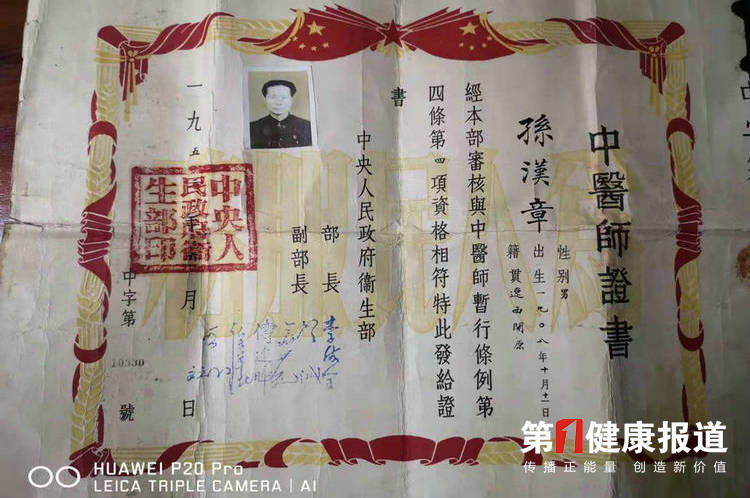 中醫師證書
孫漢章
性别男
出生一九〇八年十月十一日
籍貫遼西開原
經本部審核與中醫師暫行條例第
四條第四項資格相符特此發給證
書
中央人民政府衞生部
部長
副部長
李德全
一九五 月 日
中央人
民政府衞
生部印
中字第
10330
號
第1健康报道
传播正能量 创造新价值
HUAWEI P20 Pro
LEICA TRIPLE CAMERA | AI